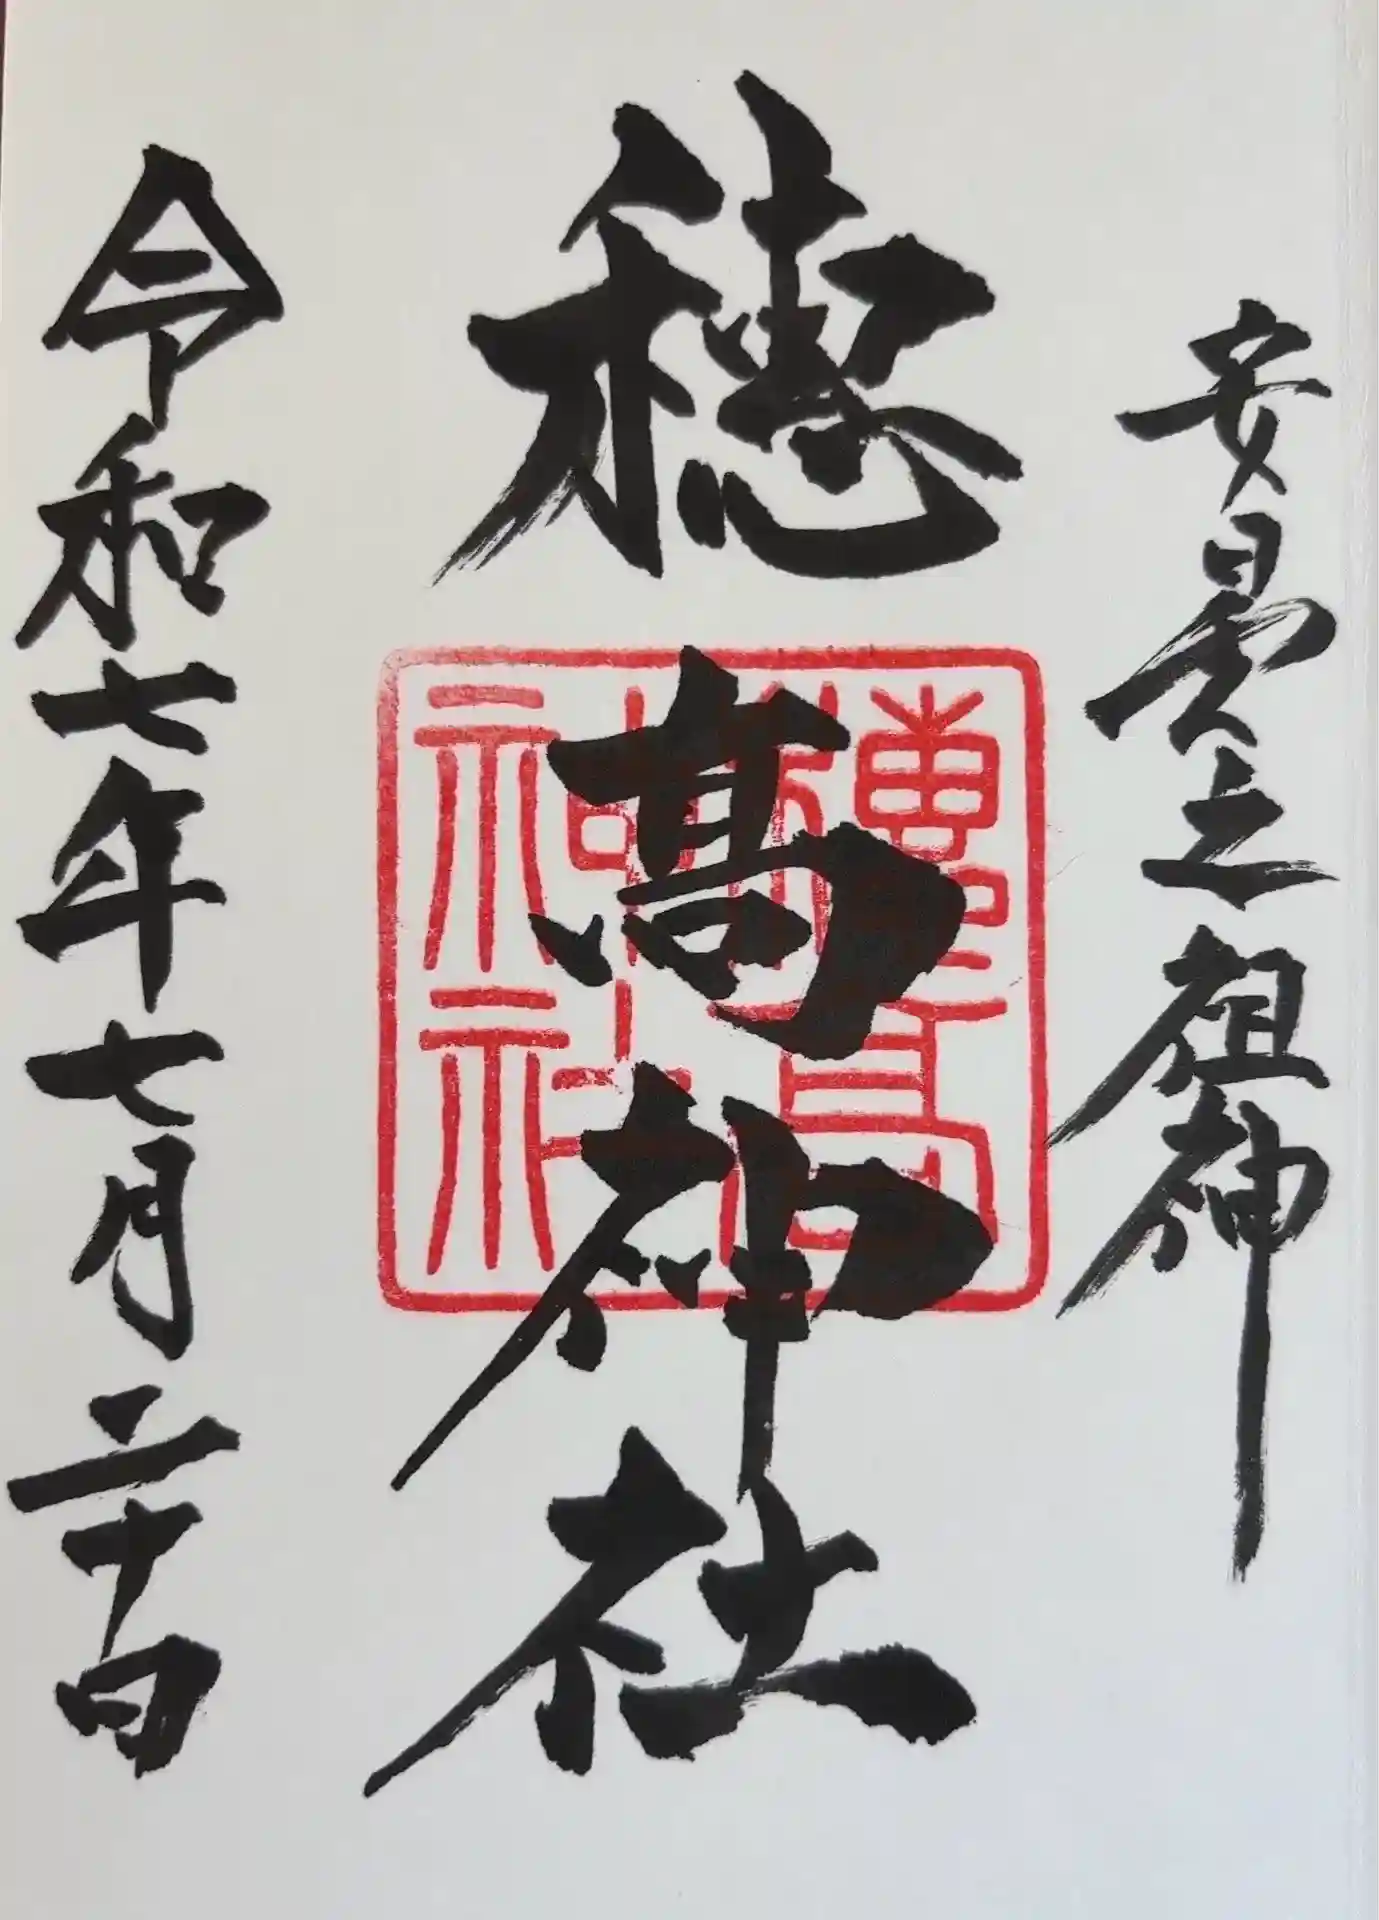 安曇之祖神
穂髙神社
穂髙神社
令和七年七月二十日